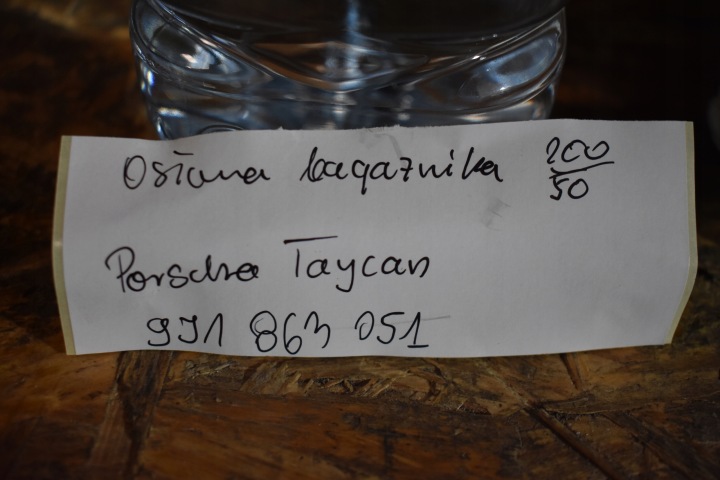 Osłona bagażnika 200/50
Porsche Taycan
9J1 863 051